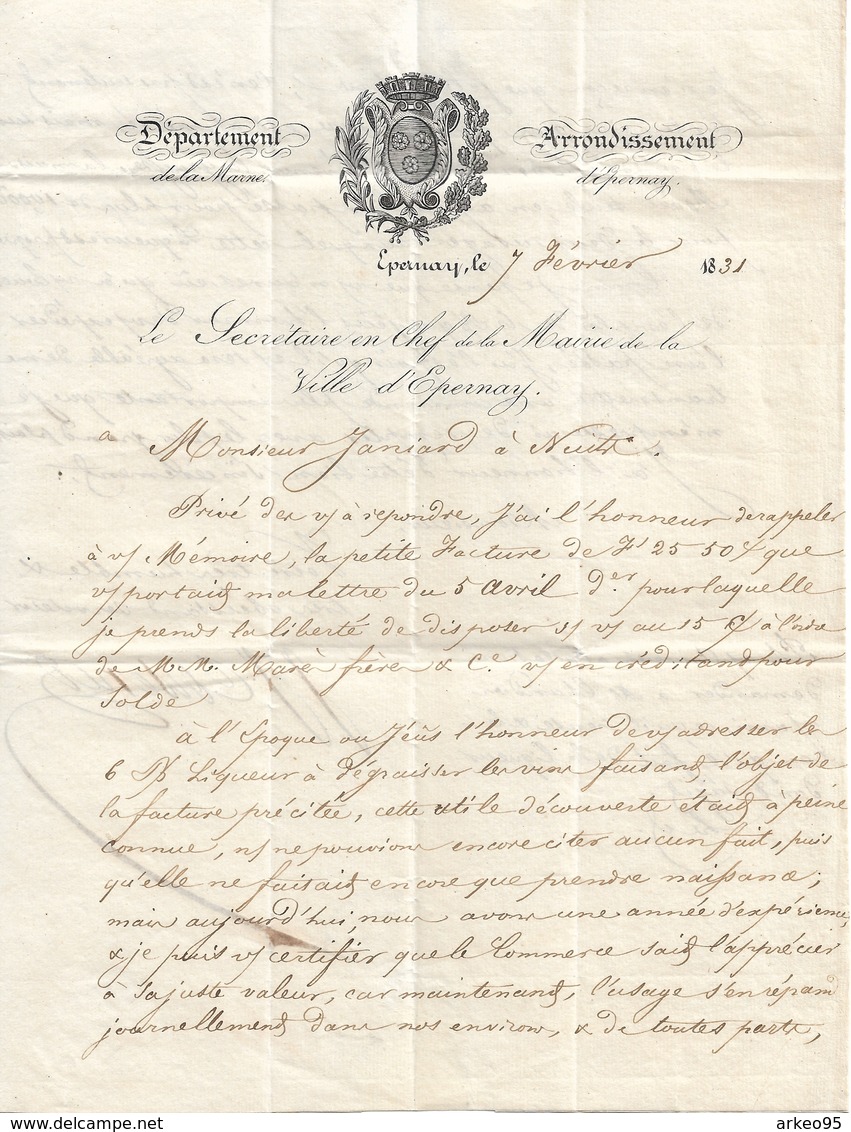 Département
de la Marne.
Arrondissement
d'Epernay.
Epernay, le 7 Février 1831
Le Secrétaire en Chef de la Mairie de la
Ville d'Epernay.
a Monsieur Janiard à Nuits.
Privé des v/ à repondre, J'ai l'honneur de rappeler
à v/ Mémoire, la petite Facture de F 25 50 que
v/ portait ma lettre du 5 avril d.er pour laquelle
je prends la liberté de disposer s/ v/ au 15 à l'ordre
de M.M. Marès frères & C.e v/ en créditant pour
Solde
à l'Epoque ou J'eûs l'honneur de v/ adresser les
6 Liqueur à dégraisser les vins faisant l'objet de
la facture précitée, cette utile découverte était à peine
connue, n/ ne pouvions encore citer aucun fait, puis
qu'elle ne faisait encore que prendre naissance ;
mais aujourd'hui, nous avons une année d'expérience,
& je puis v/ certifier que le Commerce sait l'apprécier
à sa juste valeur, car maintenant, l'usage s'en répand
journellement dans nos environs, & de toutes parts,
www.delcampe.net
arkeo95